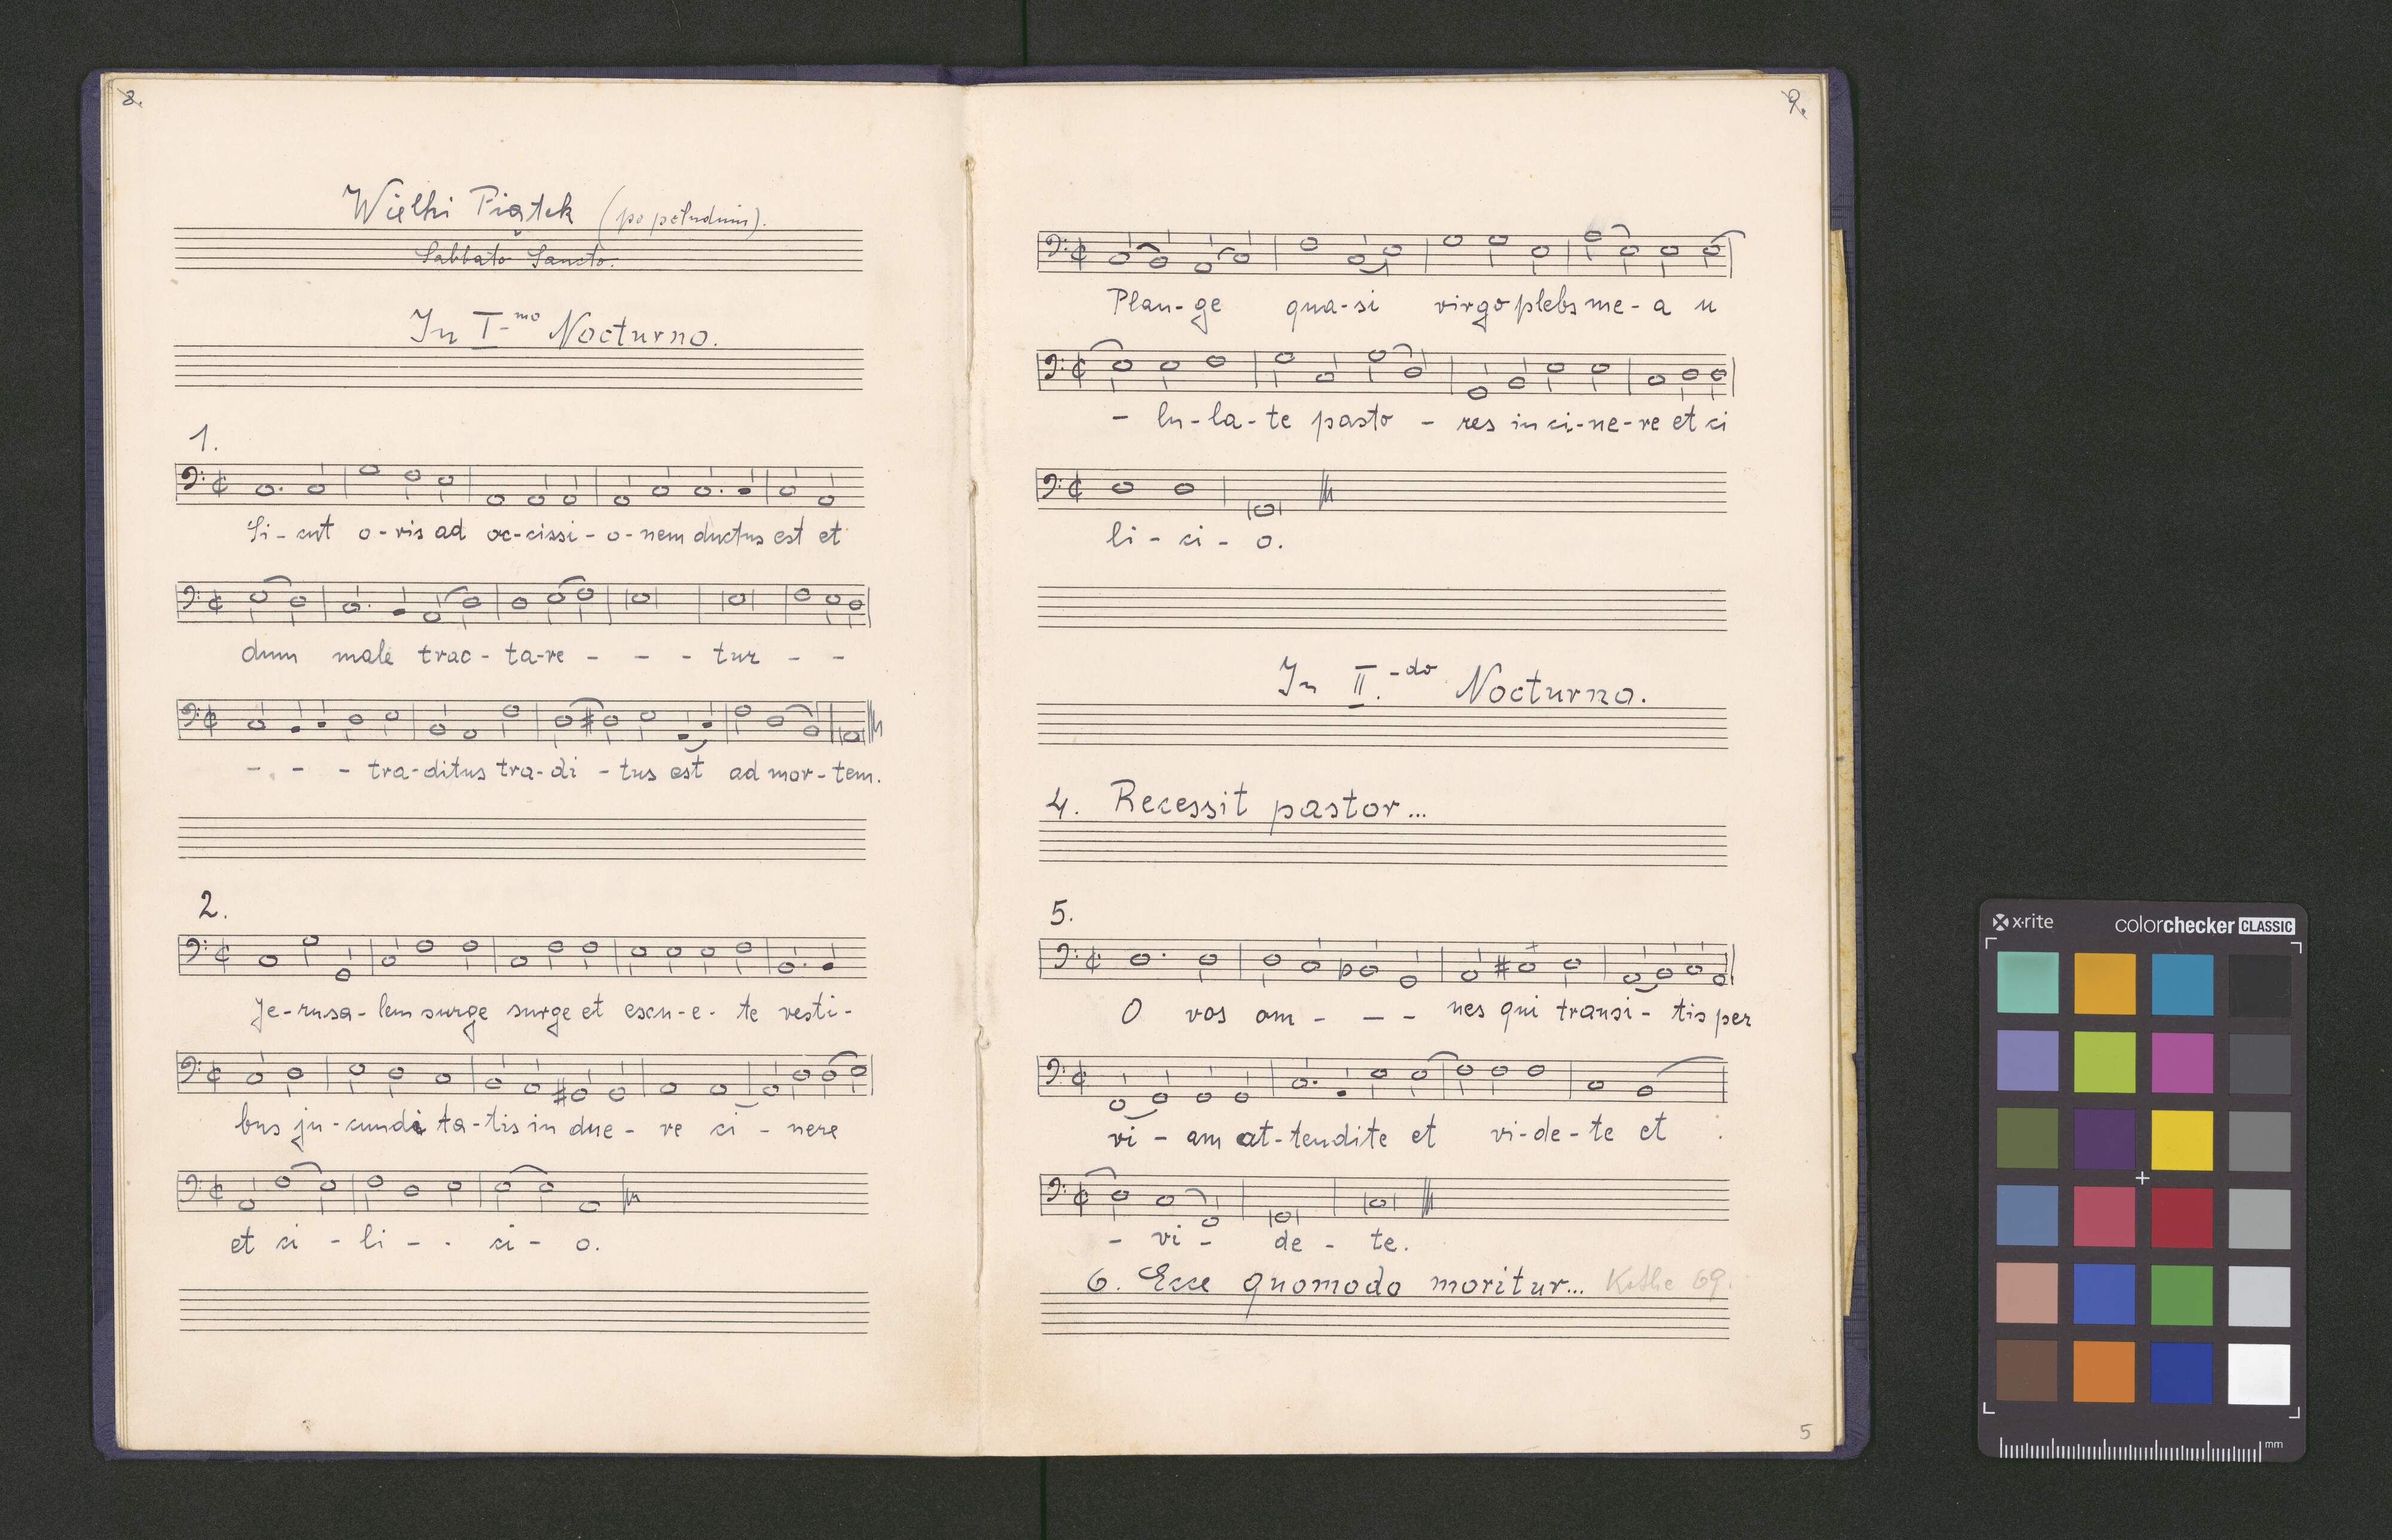 8.
Wielki Piątek (po południu).
Sabbato Sancto.
In I-mo Nocturno.
1.
Si - cut o - vis ad oc - cissi - o - nem ductus est et
dum male trac - ta - re - - - tur - -
- - - tra - ditus tra - di - tus est ad mor - tem.
2.
Je - rusa - lem surge surge et exu - e - te vesti -
bus ju - cundi ta - tis in due - re ci - nere
et ci - li - - ci - o.
9.
Plan - ge qua - si virgo plebs me - a u
- lu - la - te pasto - res in ci - ne - re et ci
li - ci - o.
In II.-do Nocturno.
4. Recessit pastor...
5.
O vos om - - - nes qui transi - tis per
vi - am at - tendite et vi - de - te et
- vi - de - te.
6. Ecce quomodo moritur... Kothe 69.
5
x·rite colorchecker CLASSIC
mm